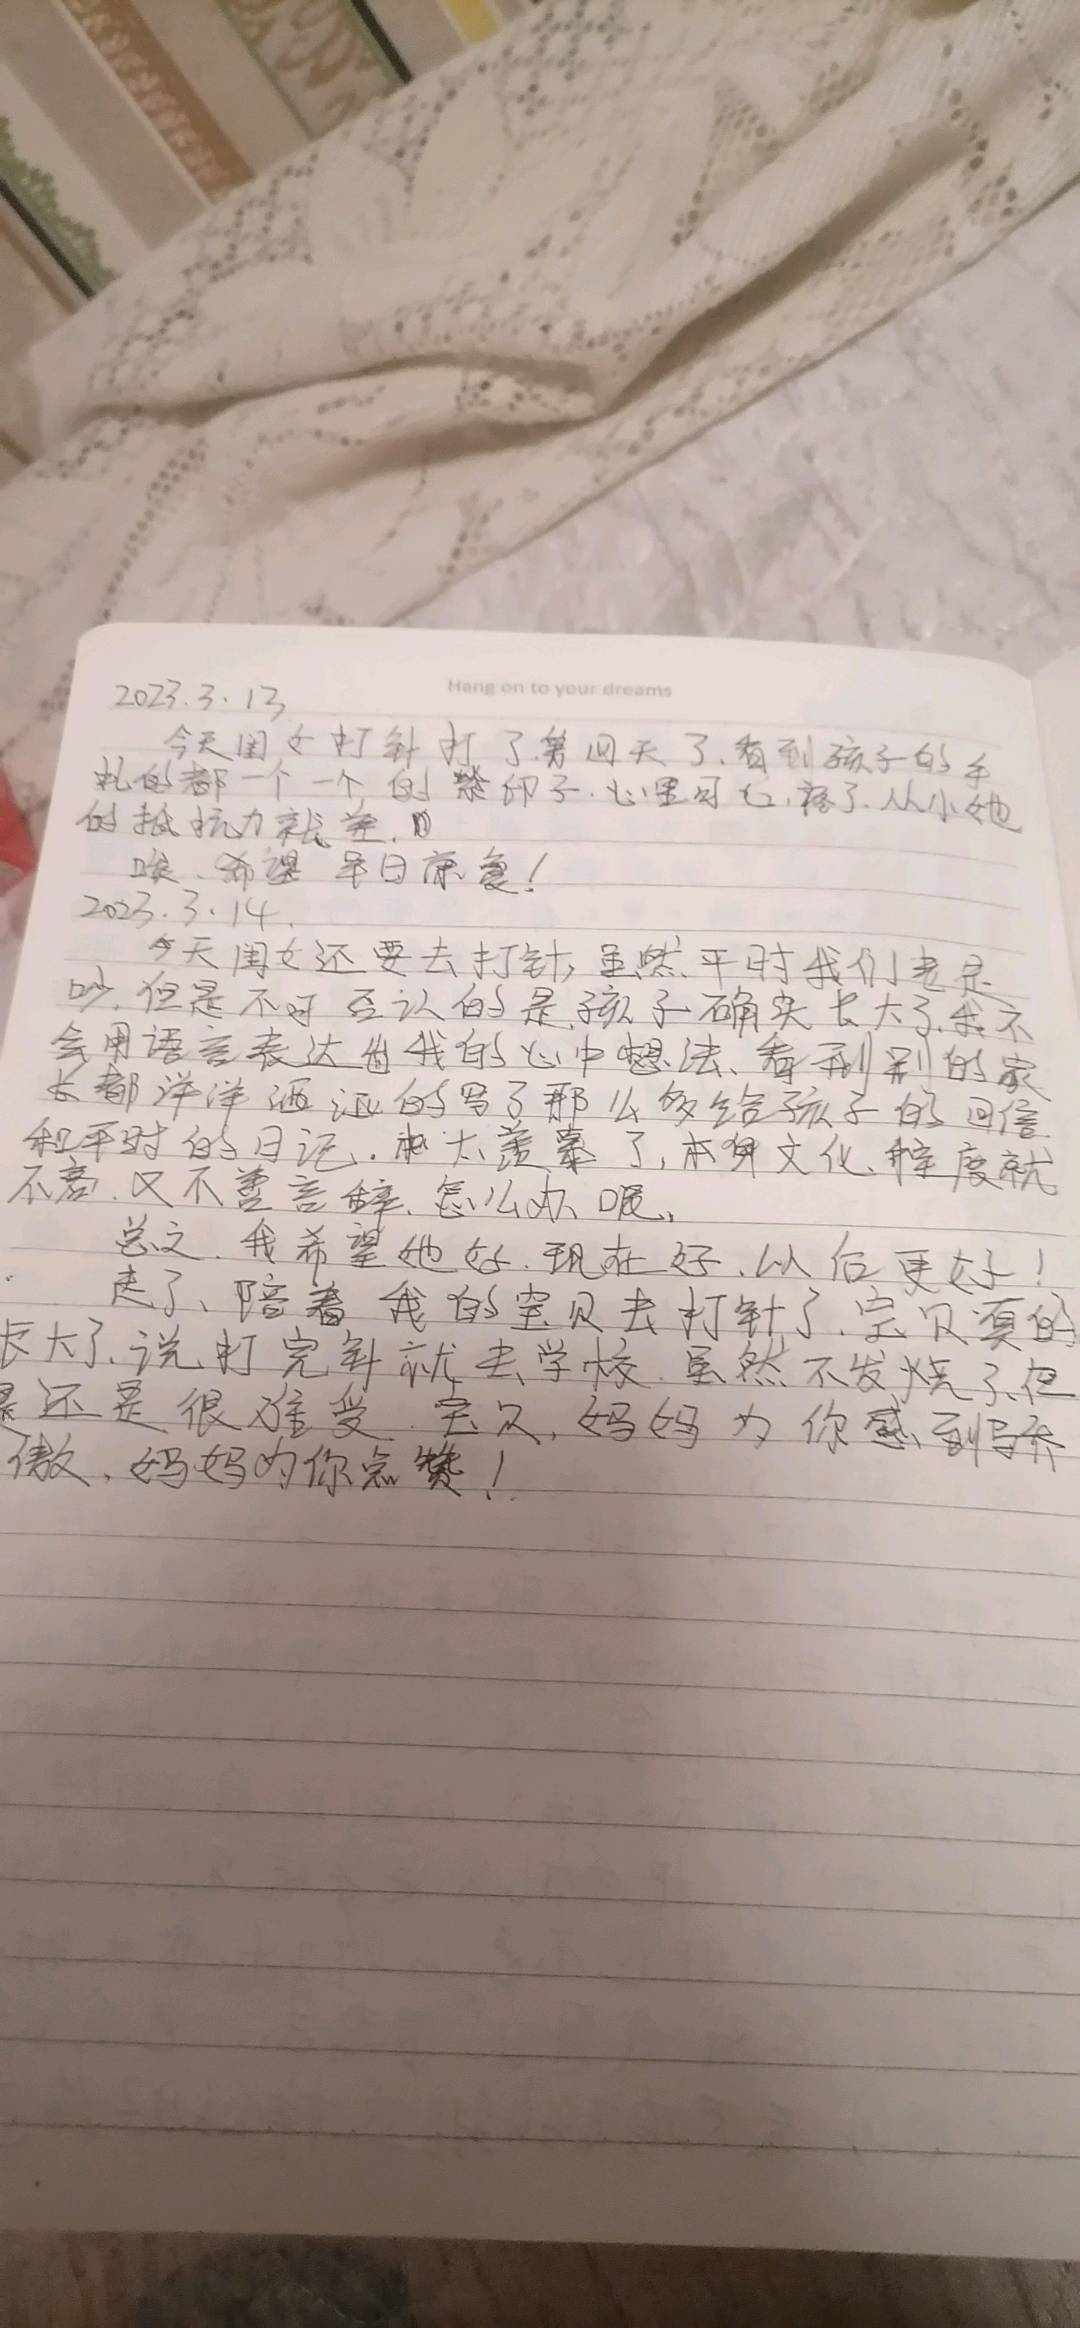 Hang on to your dreams
2023.3.13
今天闺女打针打了第四天了.看到孩子的手
扎的都一个一个的紫印子.心里可心疼了.从小她
的抵抗力就差.
唉.希望早日康复!
2023.3.14.
今天闺女还要去打针,虽然平时我们老是
吵.但是不可否认的是.孩子确实长大了.我不
会用语言表达出我的心中想法、看到别的家
长都洋洋洒洒的写了那么多给孩子的回信
和平时的日记.太羡慕了,本身文化、程度就
不高.又不善言辞.怎么办呢,
总之.我希望她好.现在好、以后更好!
走了、陪着我的宝贝去打针了.宝贝真的
长大了、说打完针就去学校.虽然不发烧了.但
是还是很难受.宝贝,妈妈为你感到骄
傲、妈妈为你点赞!